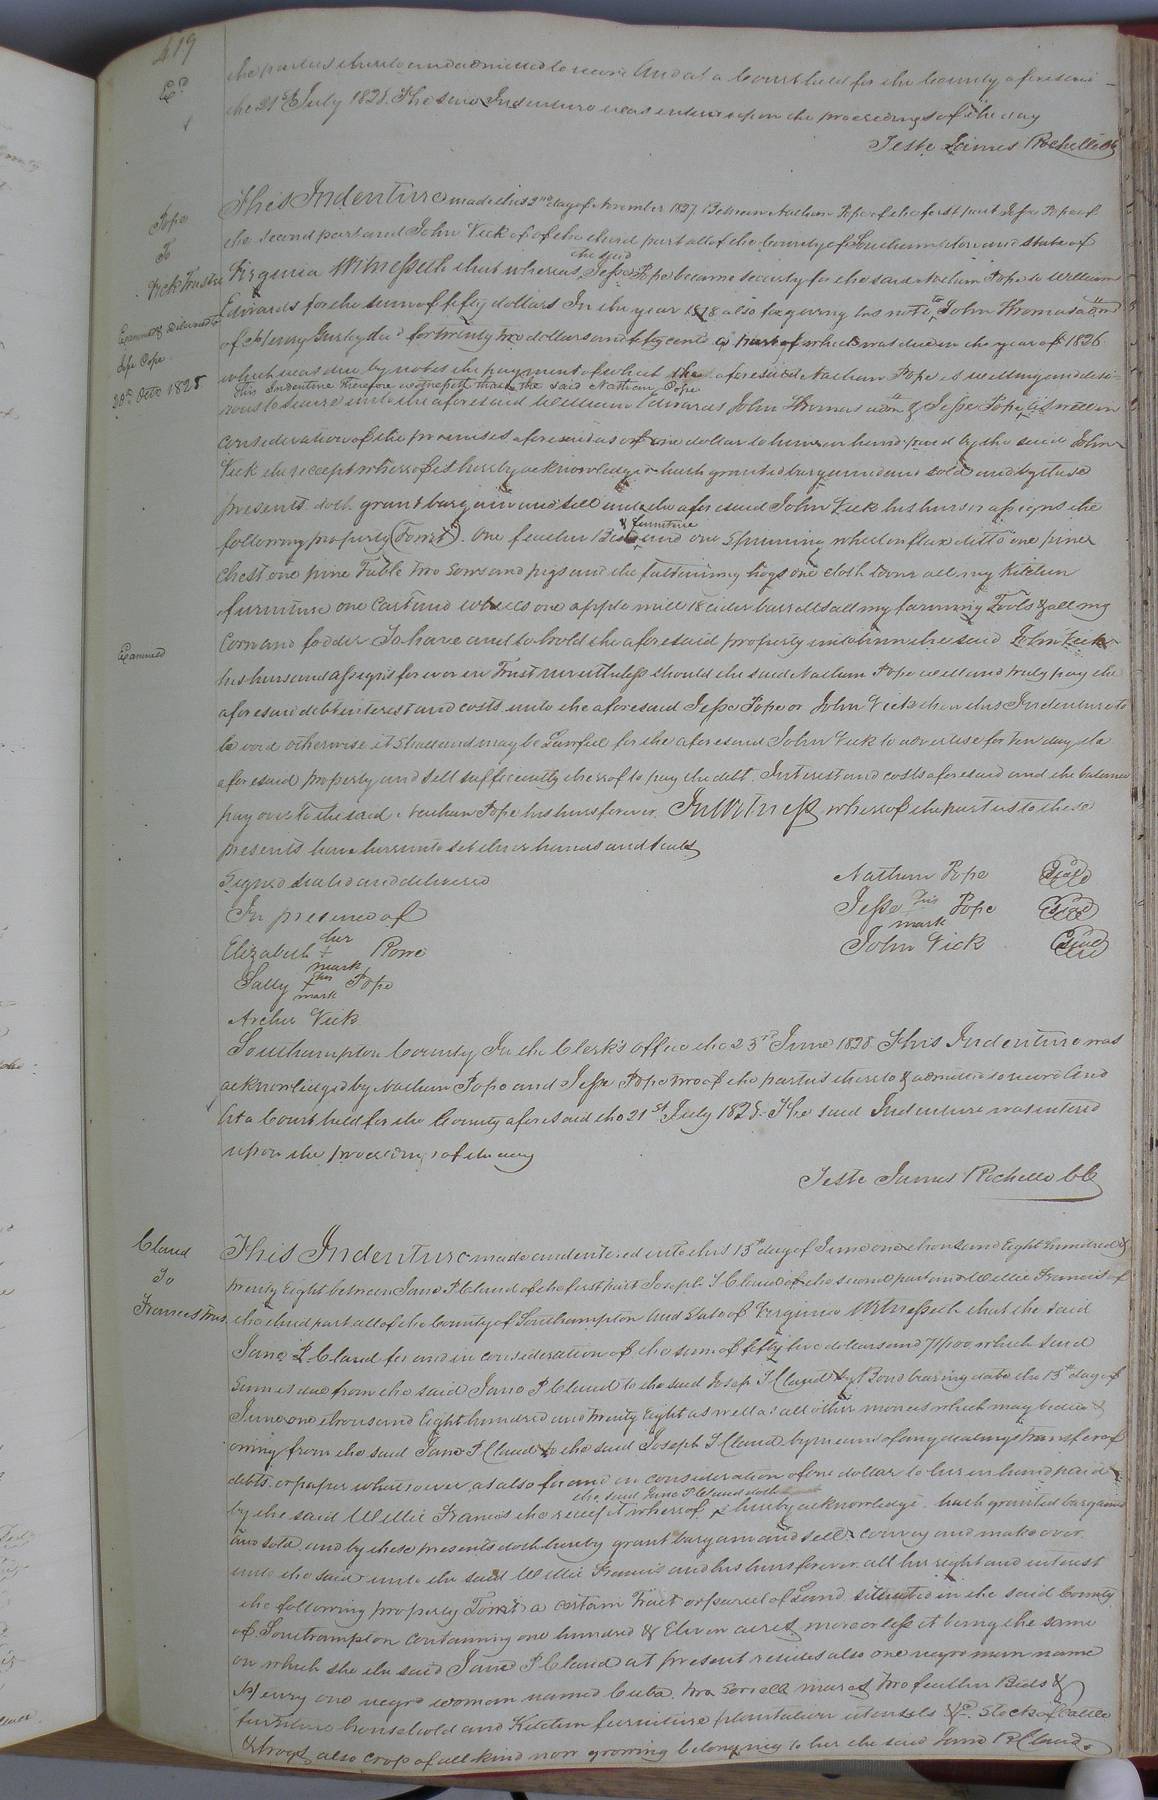 419
Exd
the parties thereto and admitted to record And at a Court held for the County aforesaid
the 21st July 1828. The said Indenture was entered upon the proceedings of the day
Teste James Rochelle Clk
Pope
To
Vick Trustee
Examined & Delivered to
Jesse Pope
20th Octo 1828
This Indenture made this 2nd day of November 1827 Between Nathan Pope of the first part Jesse Pope of
the second part and John Vick of the third part all of the County of Southampton and State of
Virginia Witnesseth that whereas the said Jesse Pope became security for the said Nathan Pope to William
Edwards for the sum of fifty dollars In the year 1818 also for giving his note to John Thomas
of Henry Gurley decd for twenty two dollars and fifty cents part of which was due in the year of 1826
which was due by notes the payment of which the aforesaid Nathan Pope is willing and desi-
This Indenture therefore witnesseth that the said Nathan Pope
rous to secure unto the aforesaid William Edwards John Thomas & Jesse Pope, as well in
consideration of the premises aforesaid as of one dollar to him in hand paid by the said John
Vick the receipt whereof is hereby acknowledged hath granted bargained and sold and by these
presents doth grant bargain and sell unto the aforesaid John Vick his heirs or assigns the
following property (Towit). One feather Bed & furniture and one Spinning wheel on flax ditto one pine
chest one pine Table two sows and pigs and the fattening hogs one cloth loom all my Kitchen
furniture one Cart and wheels one apple mill 18 cider barrells all my farming Tools & all my
Corn and fodder To have and to hold the aforesaid property unto him the said John Vick
Examined
his heirs and assigns forever in Trust nevertheless should the said Nathan Pope well and truly pay the
aforesaid debt interest and costs unto the aforesaid Jesse Pope or John Vick then this Indenture to
be void otherwise it Shall and may be Lawful for the aforesaid John Vick to advertise for Ten days the
aforesaid property and sell sufficiently thereof to pay the debt. Interest and costs aforesaid and the balance
pay over to the said Nathan Pope his heirs forever. In Witness whereof the parties to these
presents have hereunto set their hands and seals
Signed sealed and delivered
In presence of
Elizabeth her + mark Rowe
Sally her + mark Pope
Archer Vick
Nathan Pope Seal
Jesse his mark Pope Seal
John Vick Seal
Southampton County In the Clerk's office the 23rd June 1828 This Indenture was
acknowledged by Nathan Pope and Jesse Pope two of the parties thereto & admitted to record And
At a Court held for the County aforesaid the 21st July 1828. The said Indenture was entered
upon the proceedings of the day
Teste James Rochelle Clk
Claud
To
Francis Trus
This Indenture made and entered into this 13th day of June one thousand Eight hundred &
twenty Eight between Jane P Claud of the first part Joseph T Claud of the second part and Willie Francis of
the third part all of the County of Southampton And State of Virginia Witnesseth that the said
Jane P Claud for and in consideration of the sum of fifty five dollars and 71/100 which said
sum is due from the said Jane P Claud to the said Joseph T Claud by Bond bearing date the 13th day of
June one thousand Eight hundred and twenty Eight as well as all other monies which may be due &
owing from the said Jane P Claud to the said Joseph T Claud by means of any dealings transfer of
debts, or paper whatsoever, as also for and in consideration of one dollar to her in hand paid
by the said Willie Francis the receipt whereof the said Jane P Claud doth hereby acknowledge. hath granted bargained
and sold, and by these presents doth hereby grant bargain and sell & convey and make over
unto the said unto the said Willie Francis and his heirs forever all her right and interest
the following property Towit a certain Tract or parcel of Land situated in the said County
of Southampton containing one hundred & Eleven acres, more or less it being the same
on which she the said Jane P Claud at present resides also one negro man name
Henry one negro woman named Cuba. two sorrell mares, two feather Beds &
furniture household and Kitchen furniture plantation utensils &c. Stock of Cattle
& hogs, also crop of all kind now growing belonging to her the said Jane P Claud.